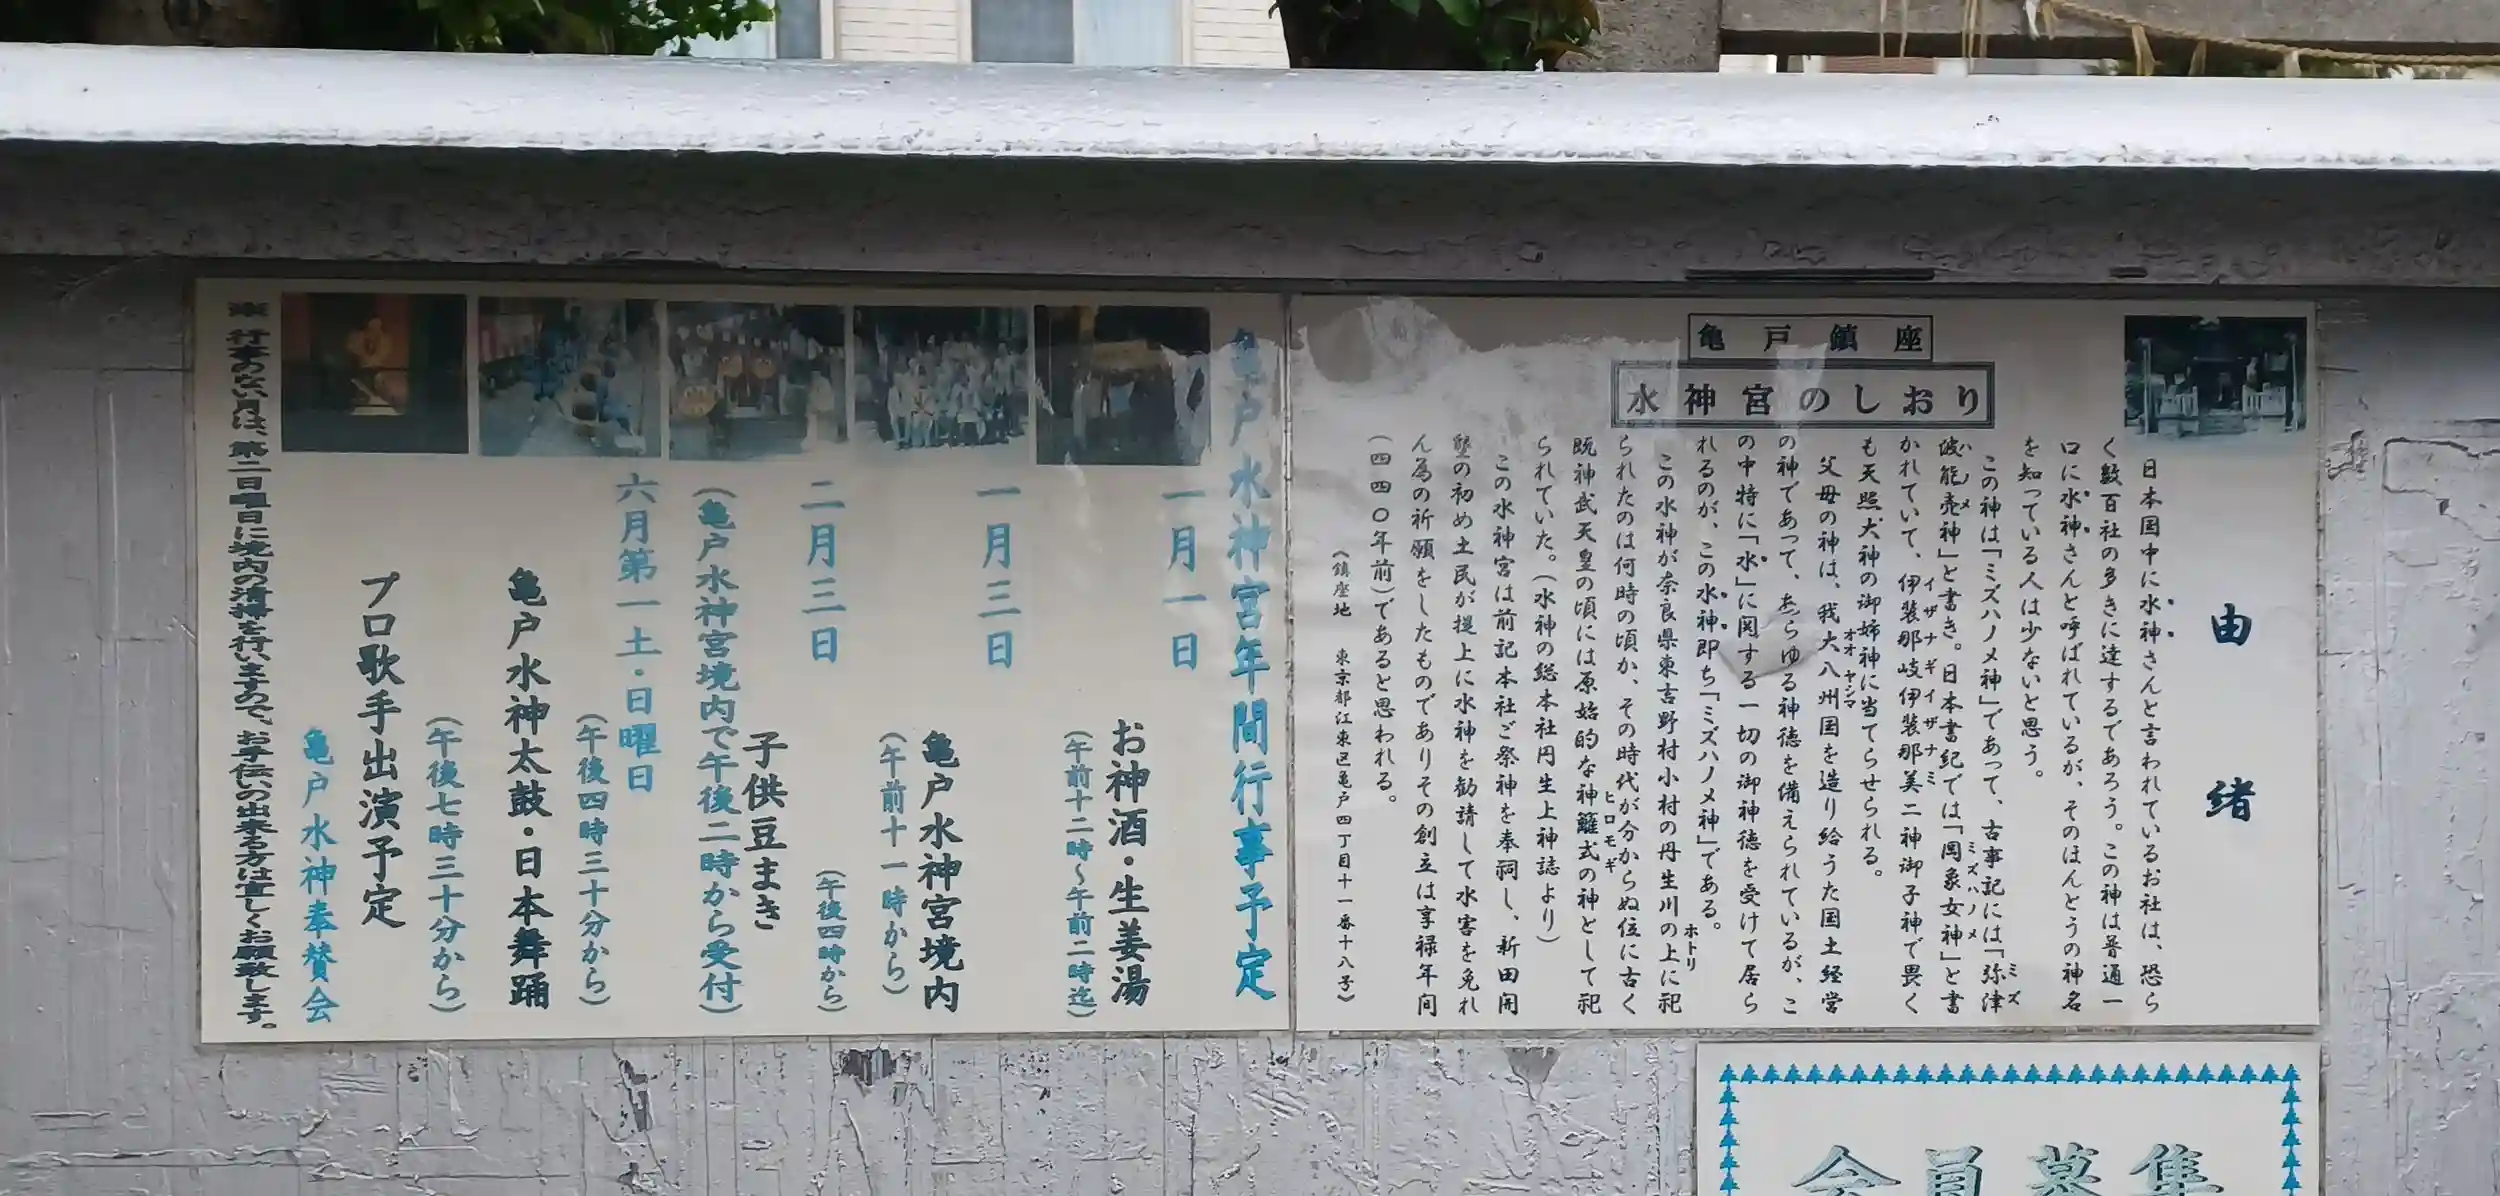 亀戸鎮座
水神宮のしおり
由緒
日本国中に水神さんと言われているお社は、恐ら
く数百社の多きに達するであろう。この神は普通一
口に水神さんと呼ばれているが、そのほんとうの神名
を知っている人は少ないと思う。
この神は「ミズハノメ神」であって、古事記には「弥津
波能売神」と書き。日本書紀では「罔象女神」と書
かれていて、伊弉那岐伊弉那美二神御子神で畏く
も天照大神の御姉神に当てらせられる。
父母の神は、我大八州国を造り給うた国土経営
の神であって、あらゆる神徳を備えられているが、こ
の中特に「水」に関する一切の御神徳を受けて居ら
れるのが、この水神即ち「ミズハノメ神」である。
この水神が奈良県東吉野村小村の丹生川の上に祀
られたのは何時の頃か、その時代が分からぬ位に古く
既神武天皇の頃には原始的な神籬式の神として祀
られていた。（水神の総本社丹生上神誌より）
この水神宮は前記本社ご祭神を奉祠し、新田開
墾の初め土民が堤上に水神を勧請して水害を免れ
ん為の祈願をしたものでありその創立は享禄年間
（四四〇年前）であると思われる。
（鎮座地 東京都江東区亀戸四丁目十一番十八号）
亀戸水神宮年間行事予定
一月一日
お神酒・生姜湯
（午前十二時～午前二時迄）
一月三日
亀戸水神宮境内
（午前十一時から）
二月三日
（午後四時から）
子供豆まき
（亀戸水神宮境内で午後二時から受付）
六月第一土・日曜日
（午後四時三十分から）
亀戸水神太鼓・日本舞踊
（午後七時三十分から）
プロ歌手出演予定
亀戸水神奉賛会
※行事のない月は、第二日曜日に境内の清掃を行いますので、お手伝いの出来る方は宜しくお願致します。
会員募集